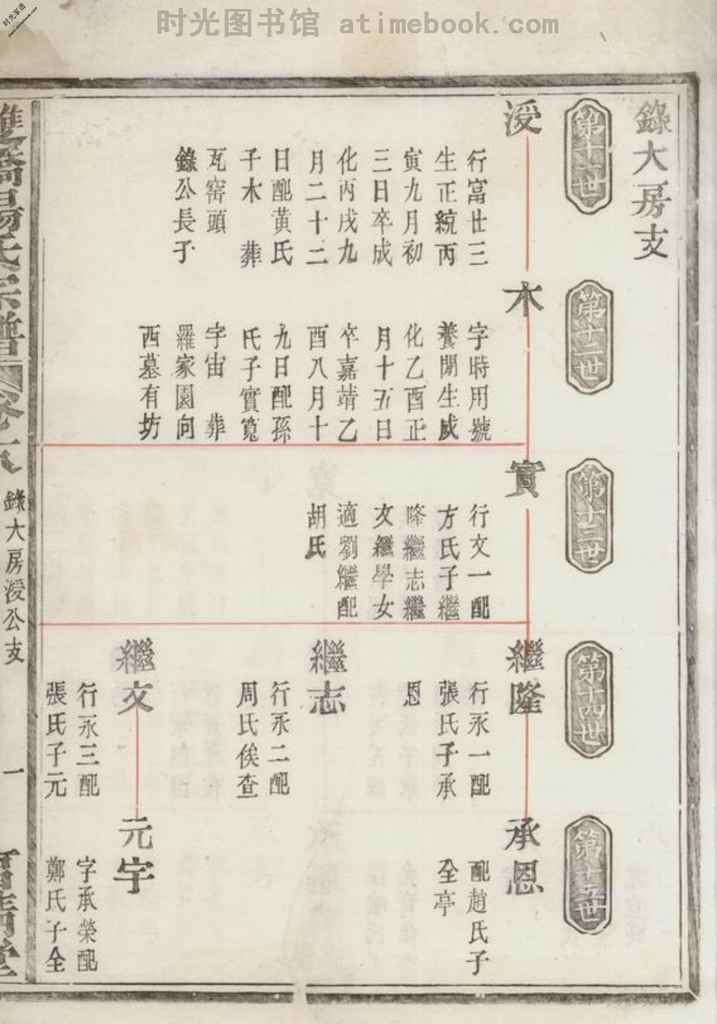 时光图书馆 atimebook.com
錄大房支
第十一世
浸
行富廿三
生正統丙
寅九月初
三日卒成
化丙戌九
月二十二
日配黃氏
子木 葬
瓦窑頭
錄公長子
第十二世
木
字時用號
養閒生成
化乙酉正
月十五日
卒嘉靖乙
酉八月十
九日配孫
氏子實寬
字宙 葬
羅家園向
西墓有坊
第十三世
實
行文一配
方氏子繼
隆繼志繼
文繼學女
適劉繼配
胡氏
第十四世
繼隆
行永一配
張氏子承
恩
繼志
行永二配
周氏俟查
繼文
行永三配
張氏子元
第十五世
承恩
配趙氏子
全亭
元宇
字承榮配
鄭氏子全
雙橋楊氏宗譜
錄大房浸公支
一